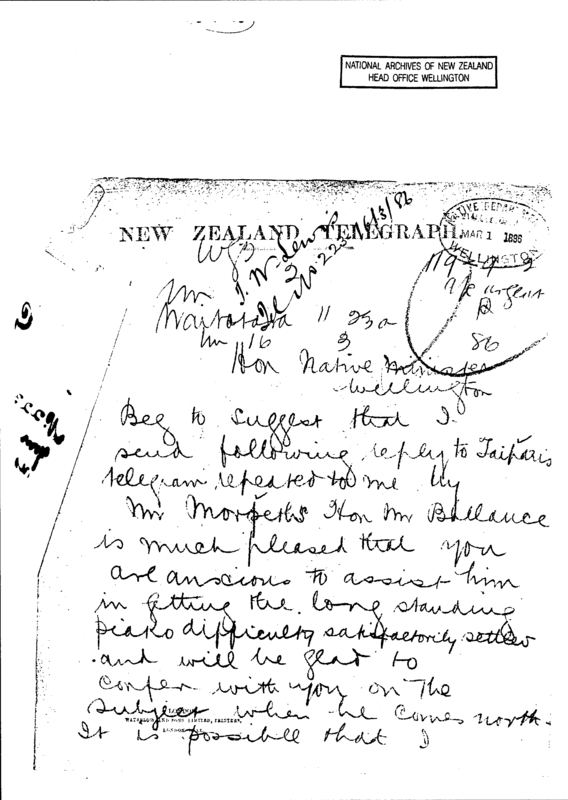 NATIONAL ARCHIVES OF NEW ZEALAND
HEAD OFFICE WELLINGTON
NEW ZEALAND TELEGRAPH
MAR 1 1886
WELLINGTON
T. W. Lewis
16/3/86
urgent
86
Waitotara 11 23a
16 3
Hon Native Minister
Wellington
Beg to suggest that I
send following reply to Taipari's
telegram repeated to me by
Mr Morpeth Hon Mr Ballance
is much pleased that you
are anxious to assist him
in getting the long standing
piako difficulty satisfactorily settled
and will be glad to
confer with you on the
subject when he comes north.
It is possible that I